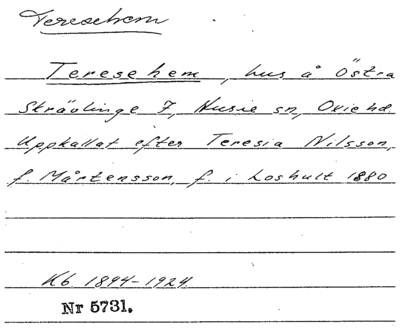 Teresehem
Teresehem, hus å Östra
Skrävlinge 7, Husie sn, Oxie hd
Uppkallat efter Teresia Nilsson,
f. Mårtensson, f. i Loshult 1880
Kb. 1894-1924
Nr 5731.